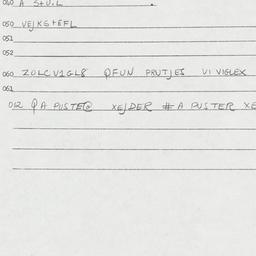 040 A
050 VEJKS+EFL
051
052
060 ZOLCV1GL8 QFUN PRUTJES VI VIGLEX
061
012 A PUSTER XEJDER # A PUSTER XE